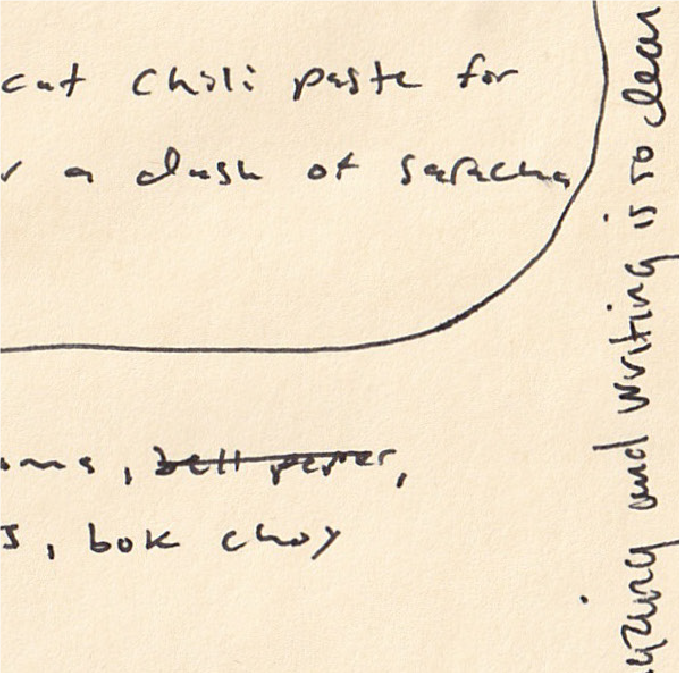 cut chili paste for
a dash of sriracha
, bell pepper,
, bok choy
and writing is so clear